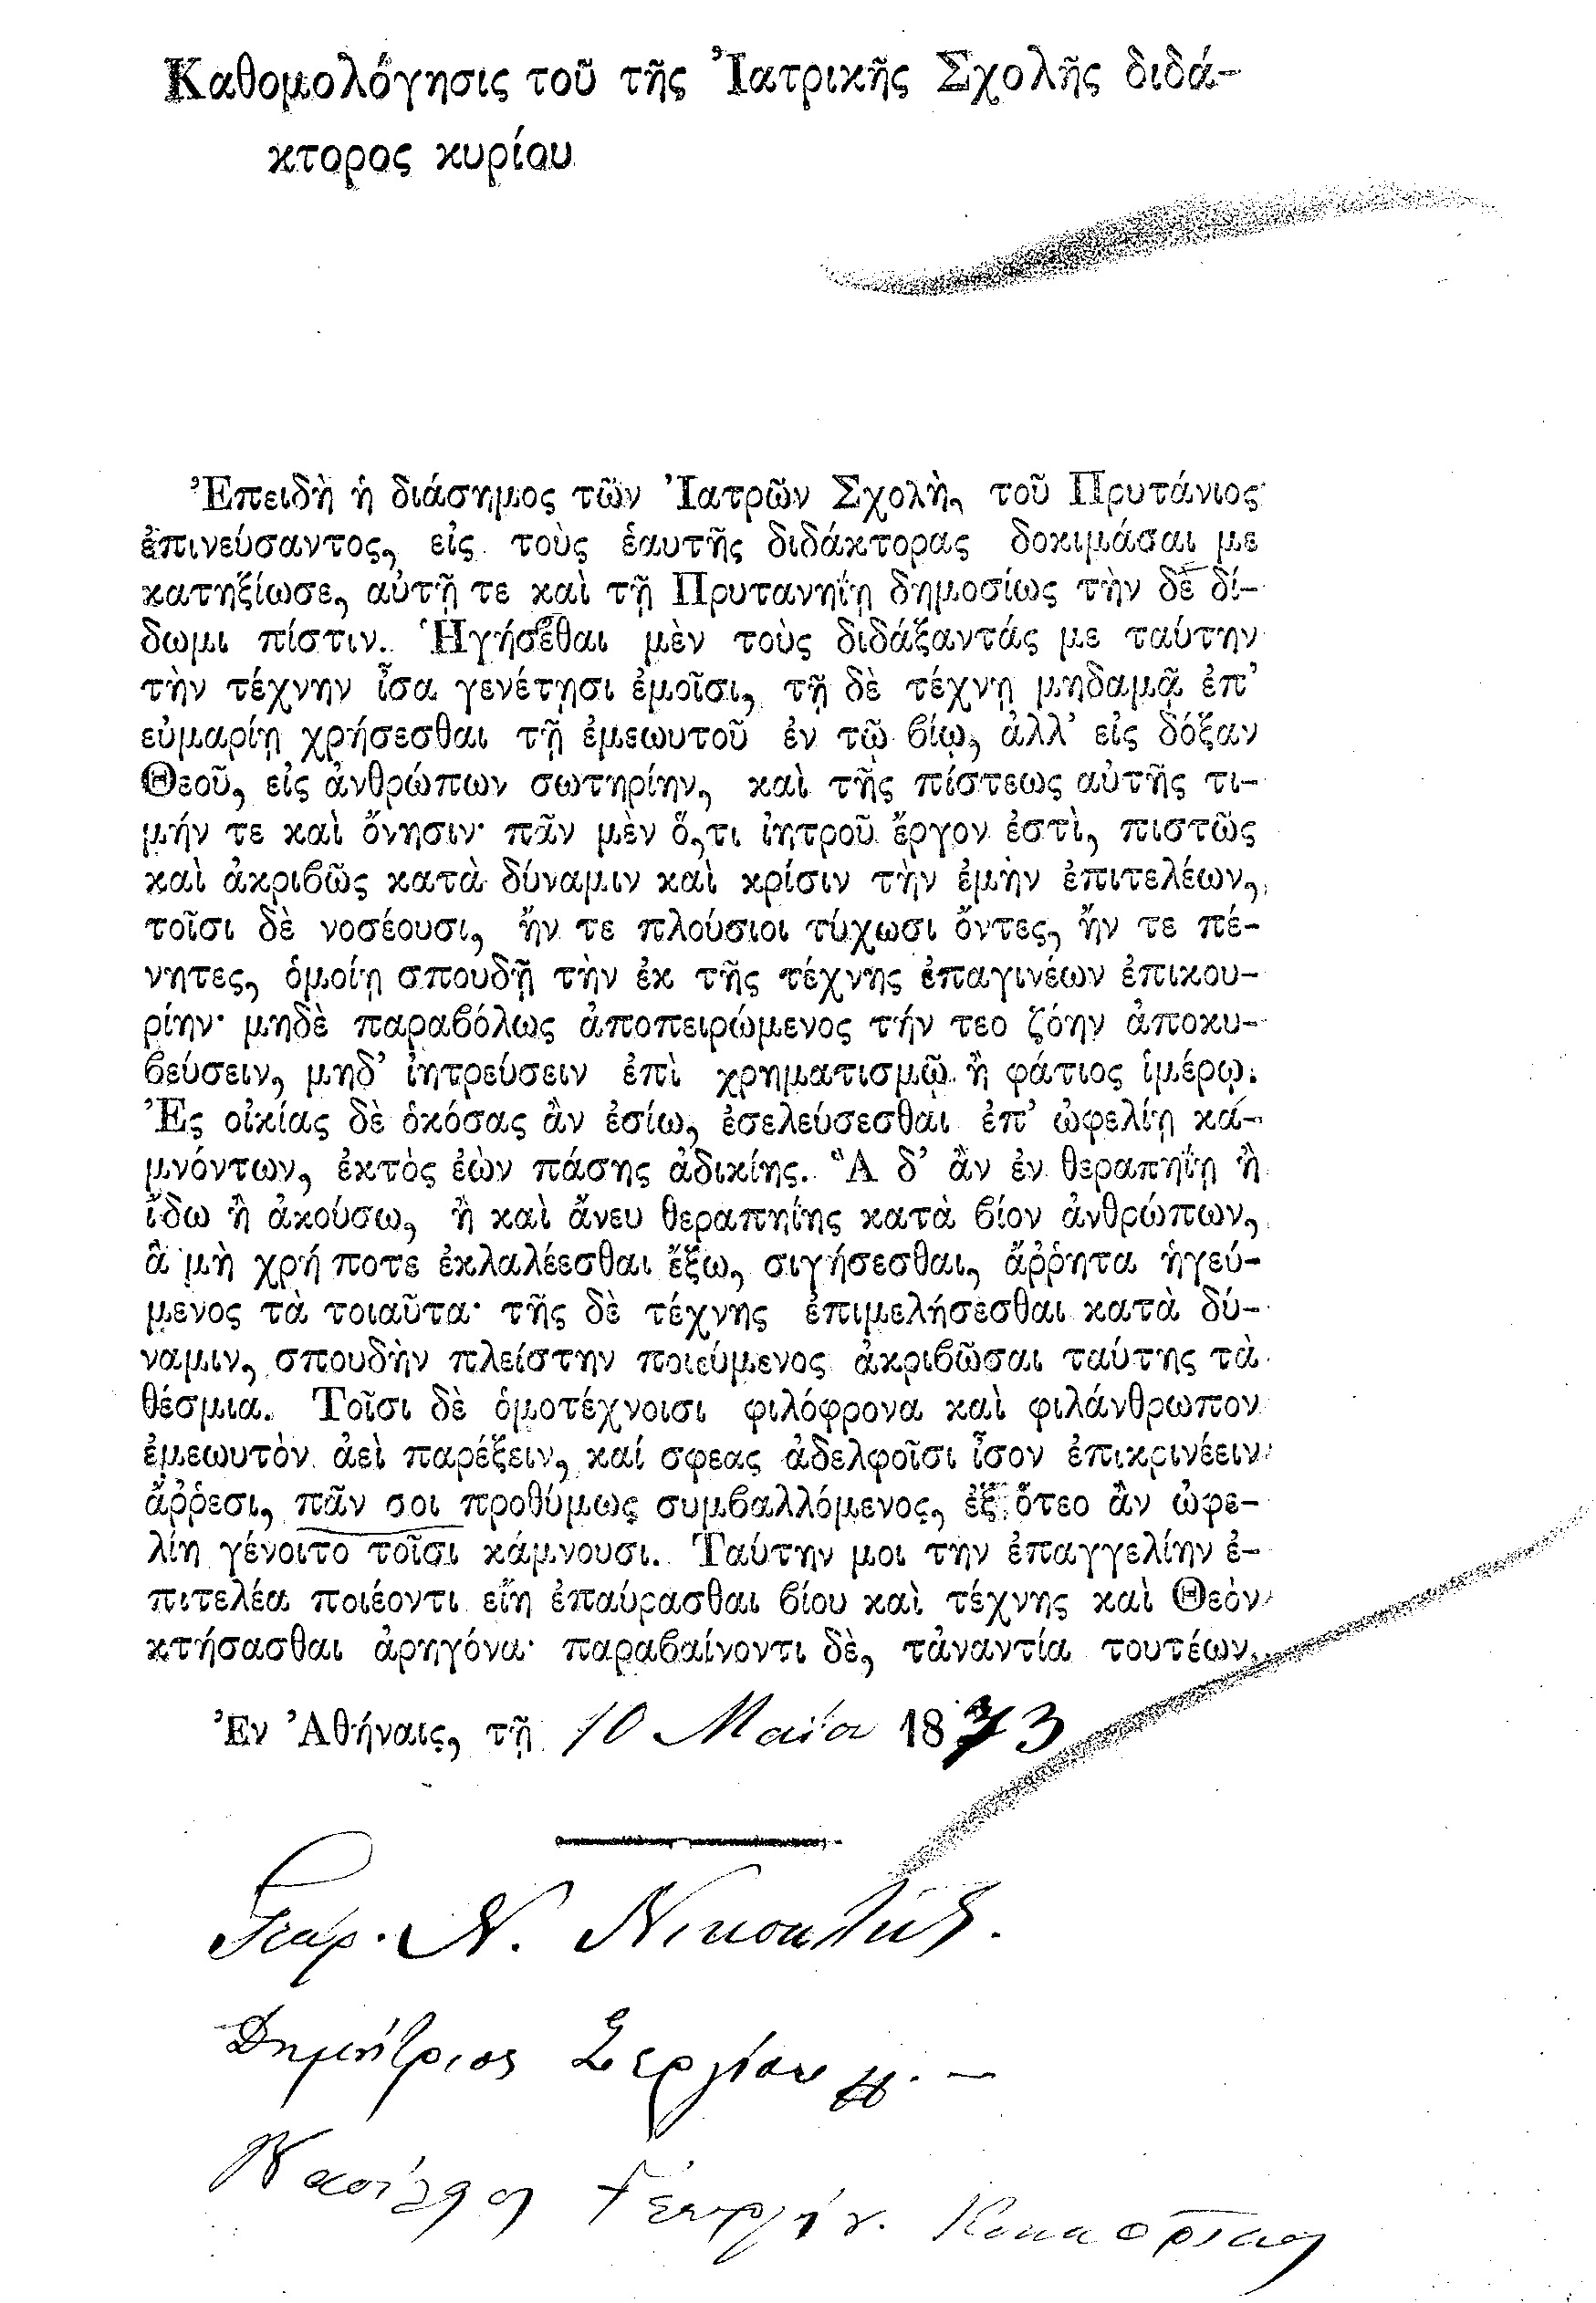 Καθομολόγησις τοῦ τῆς Ἰατρικῆς Σχολῆς διδά-
κτορος κυρίου
Ἐπειδὴ ἡ διάσημος τῶν Ἰατρῶν Σχολὴ, τοῦ Πρυτάνιος
ἐπινεύσαντος, εἰς τοὺς ἑαυτῆς διδάκτορας δοκιμάσαι με
κατηξίωσε, αὐτῇ τε καὶ τῇ Πρυτανηΐῃ δημοσίως τὴν δὲ δί-
δωμι πίστιν. Ἡγήσεθαι μὲν τοὺς διδάξαντάς με ταύτην
τὴν τέχνην ἶσα γενέτῃσι ἐμοῖσι, τῇ δὲ τέχνῃ μηδαμᾷ ἐπ’
εὐμαρίῃ χρήσεσθαι τῇ ἐμεωυτοῦ ἐν τῷ βίῳ, ἀλλ’ εἰς δόξαν
Θεοῦ, εἰς ἀνθρώπων σωτηρίην, καὶ τῆς πίστεως αὐτῆς τι-
μήν τε καὶ ὄνησιν· πᾶν μὲν ὅ,τι ἰητροῦ ἔργον ἐστὶ, πιστῶς
καὶ ἀκριβῶς κατὰ δύναμιν καὶ κρίσιν τὴν ἐμὴν ἐπιτελέων,
τοῖσι δὲ νοσέουσι, ἤν τε πλούσιοι τύχωσι ὄντες, ἤν τε πέ-
νητες, ὁμοίῃ σπουδῇ τὴν ἐκ τῆς τέχνης ἐπαγινέων ἐπικου-
ρίην· μηδὲ παραβόλως ἀποπειρώμενος τήν τεο ζόην ἀποκυ-
βεύσειν, μηδ’ ἰητρεύσειν ἐπὶ χρηματισμῷ ἢ φάτιος ἱμέρῳ.
Ἐς οἰκίας δὲ ὁκόσας ἂν ἐσίω, ἐσελεύσεσθαι ἐπ’ ὠφελίῃ κα-
μνόντων, ἐκτὸς ἐὼν πάσης ἀδικίης. Ἃ δ’ ἂν ἐν θεραπηΐῃ ἢ
ἴδω ἢ ἀκούσω, ἢ καὶ ἄνευ θεραπηΐης κατὰ βίον ἀνθρώπων,
ἃ μὴ χρή ποτε ἐκλαλέεσθαι ἔξω, σιγήσεσθαι, ἄῤῥητα ἡγεύ-
μενος τὰ τοιαῦτα· τῆς δὲ τέχνης ἐπιμελήσεσθαι κατὰ δύ-
ναμιν, σπουδὴν πλείστην ποιεύμενος ἀκριβῶσαι ταύτης τὰ
θέσμια. Τοῖσι δὲ ὁμοτέχνοισι φιλόφρονα καὶ φιλάνθρωπον
ἐμεωυτὸν ἀεὶ παρέξειν, καί σφεας ἀδελφοῖσι ἶσον ἐπικρινέειν
ἄῤῥεσι, πᾶν σοι προθύμως συμβαλλόμενος, ἐξ ὅτεο ἂν ὠφε-
λίη γένοιτο τοῖσι κάμνουσι. Ταύτην μοι την ἐπαγγελίην ἐ-
πιτελέα ποιέοντι εἴη ἐπαύρασθαι βίου καὶ τέχνης καὶ Θεὸν
κτήσασθαι ἀρηγόνα· παραβαίνοντι δὲ, τἀναντία τουτέων.
Ἐν Ἀθήναις, τῇ 10 Μαΐου 1873
Γεώρ. Ν. Νικολαΐδης.
Δημήτριος Σεργίου
Γεωργίου